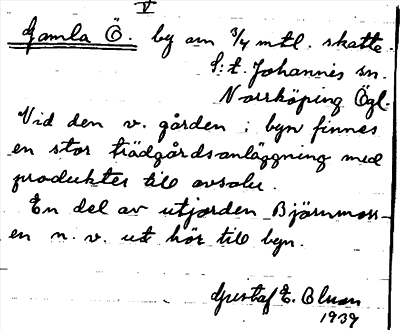 V
Gamla Ö. by om 3/4 mtl. skatte.
S:t. Johannis sn.
Norrköping Ögl.
Vid den v. gården i byn finnes
en stor trädgårdsanläggning med
produkter till avsalu.
En del av utjorden Björnmoss-
en n. v. ut hör till byn.
Gustaf E. Olsson
1939